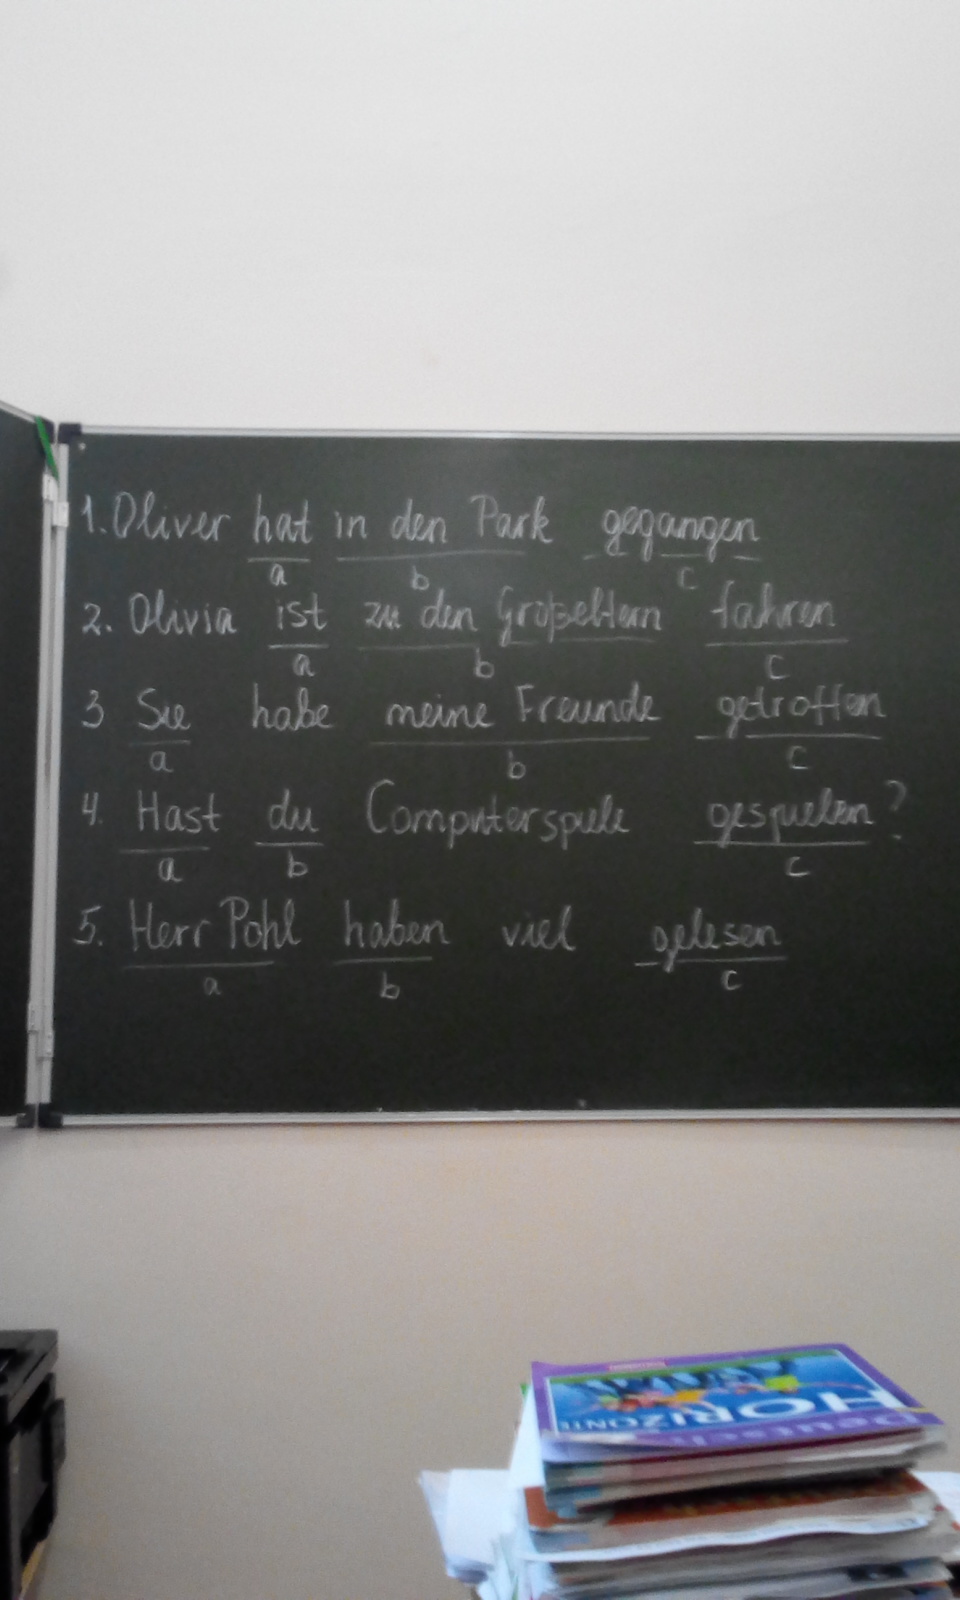 1. Oliver hat in den Park gegangen
a b c
2. Olivia ist zu den Großeltern fahren
a b c
3 Sie habe meine Freunde getroffen
a b c
4. Hast du Computerspiele gespielen?
a b c
5. Herr Pohl haben viel gelesen
a b c
Deutsch
HORIZONTE